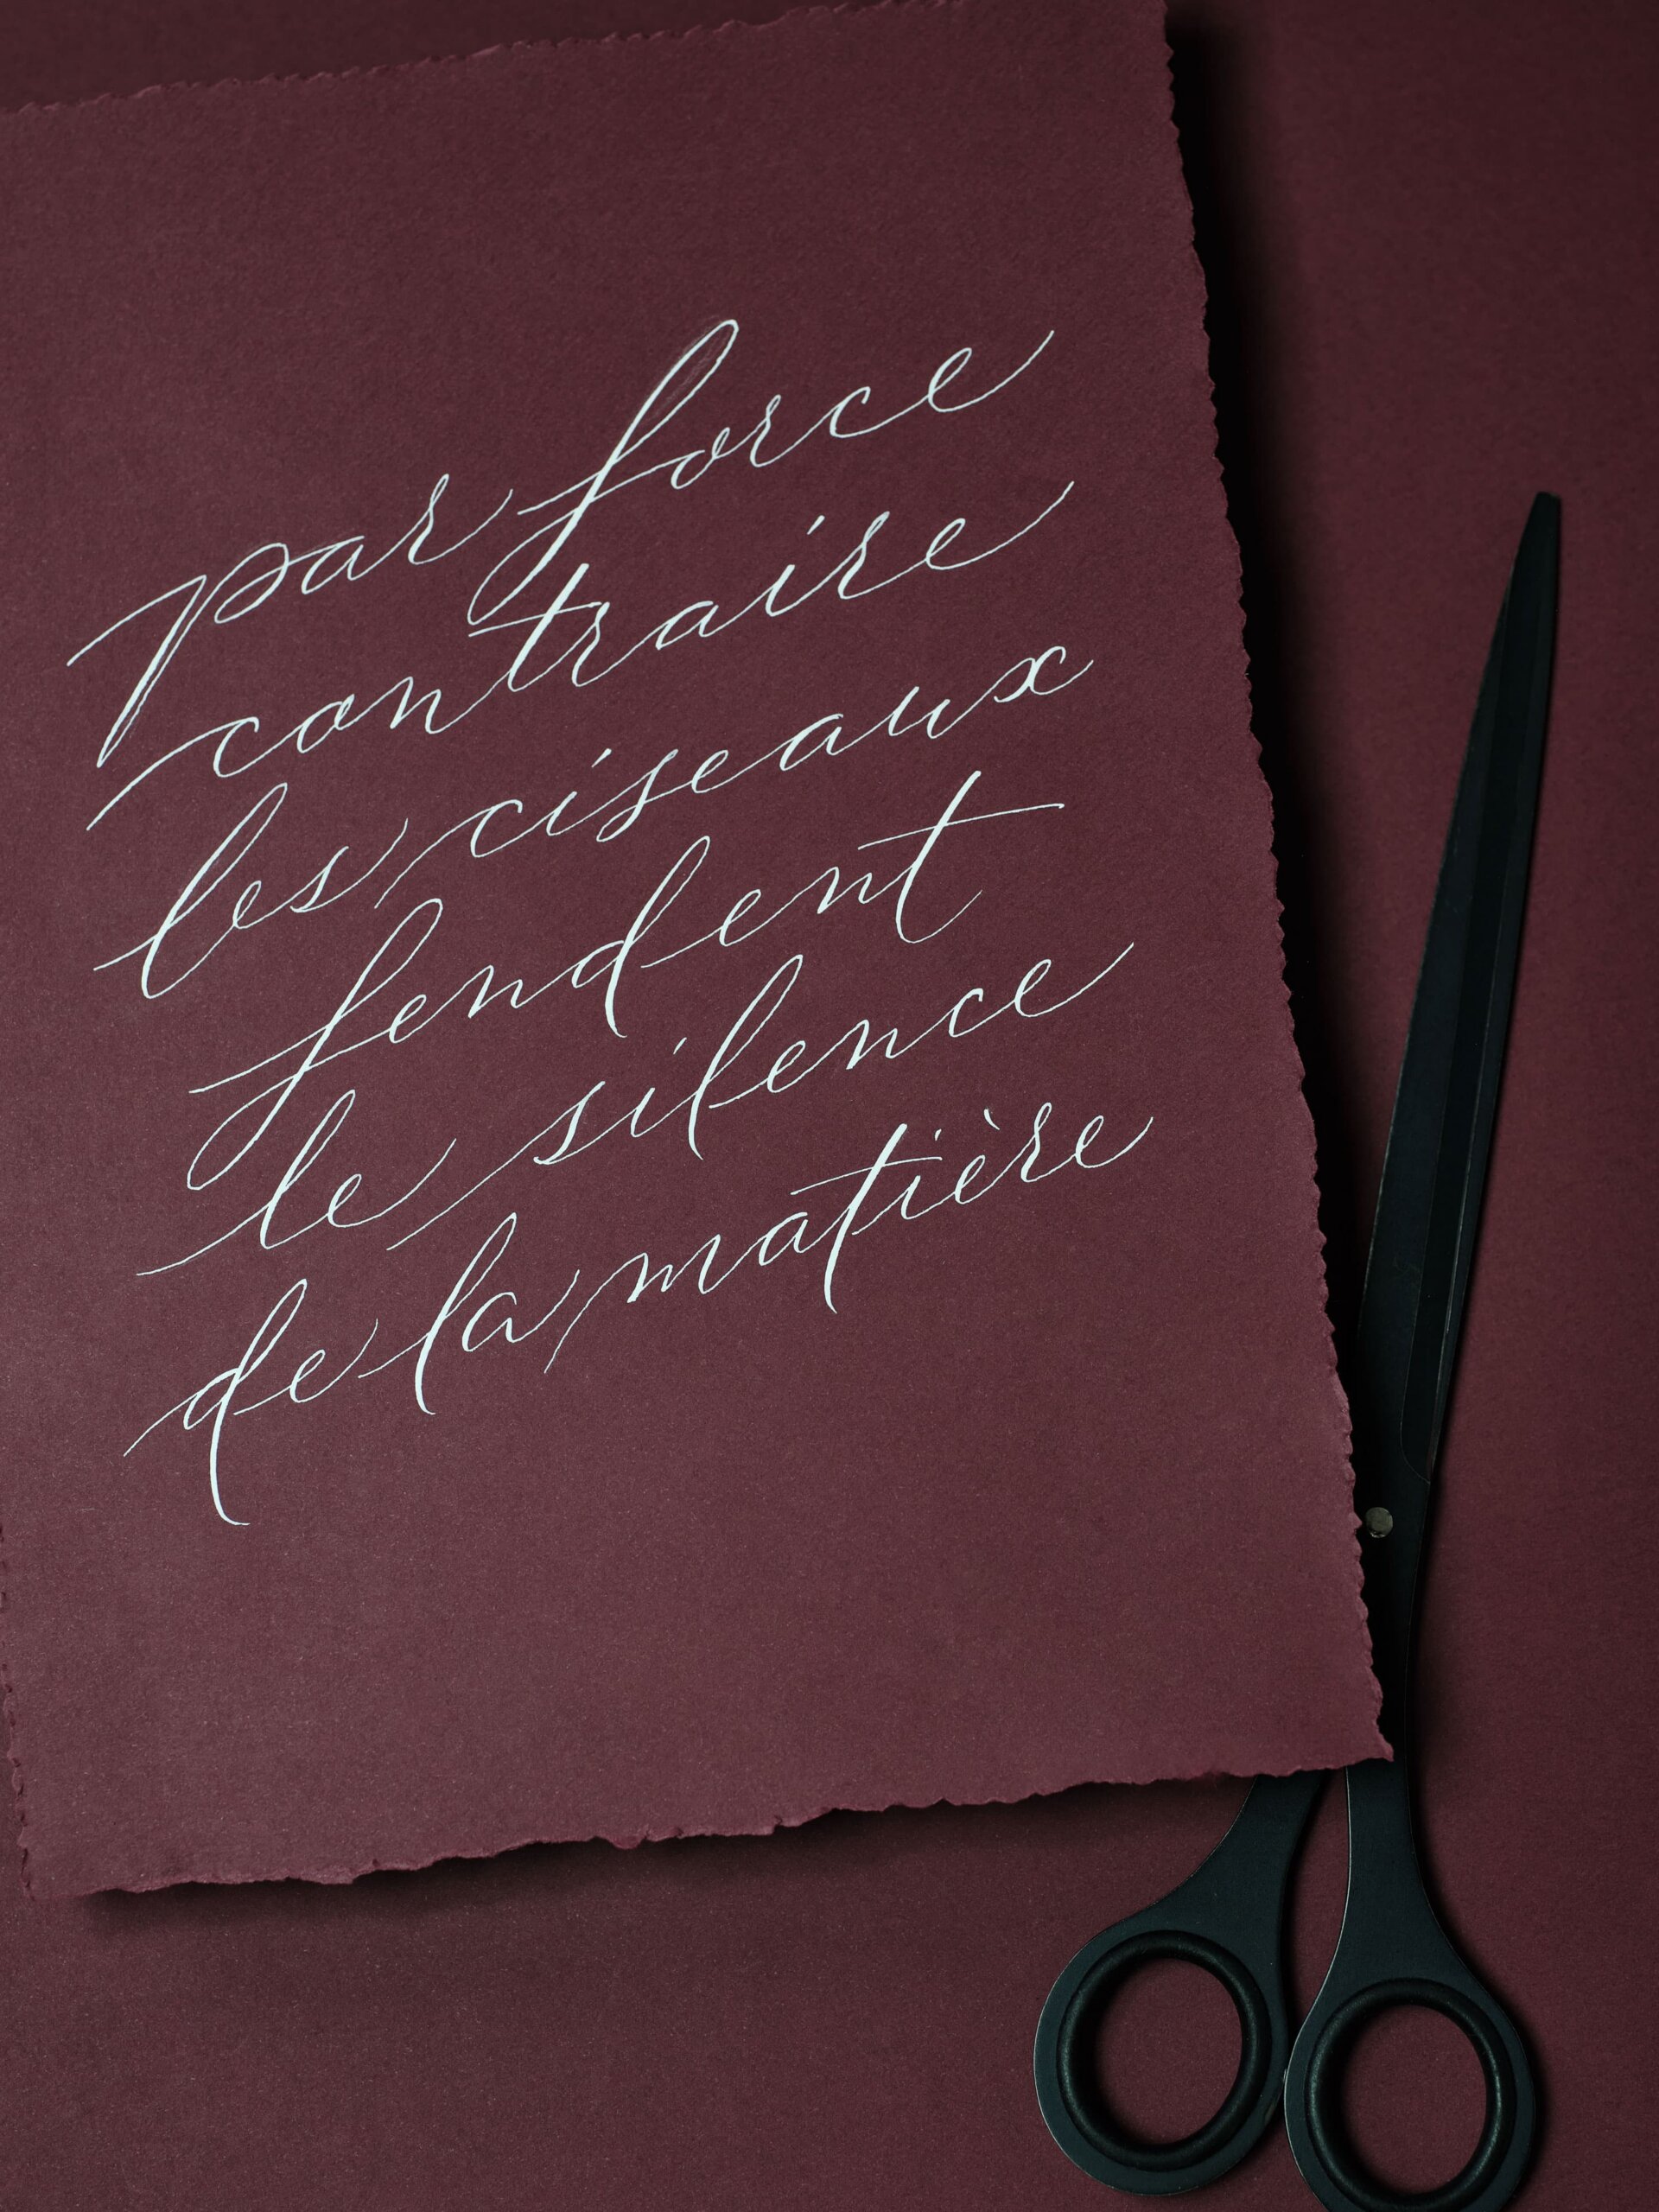 par force
contraire
les ciseaux
fendent
le silence
de la matière